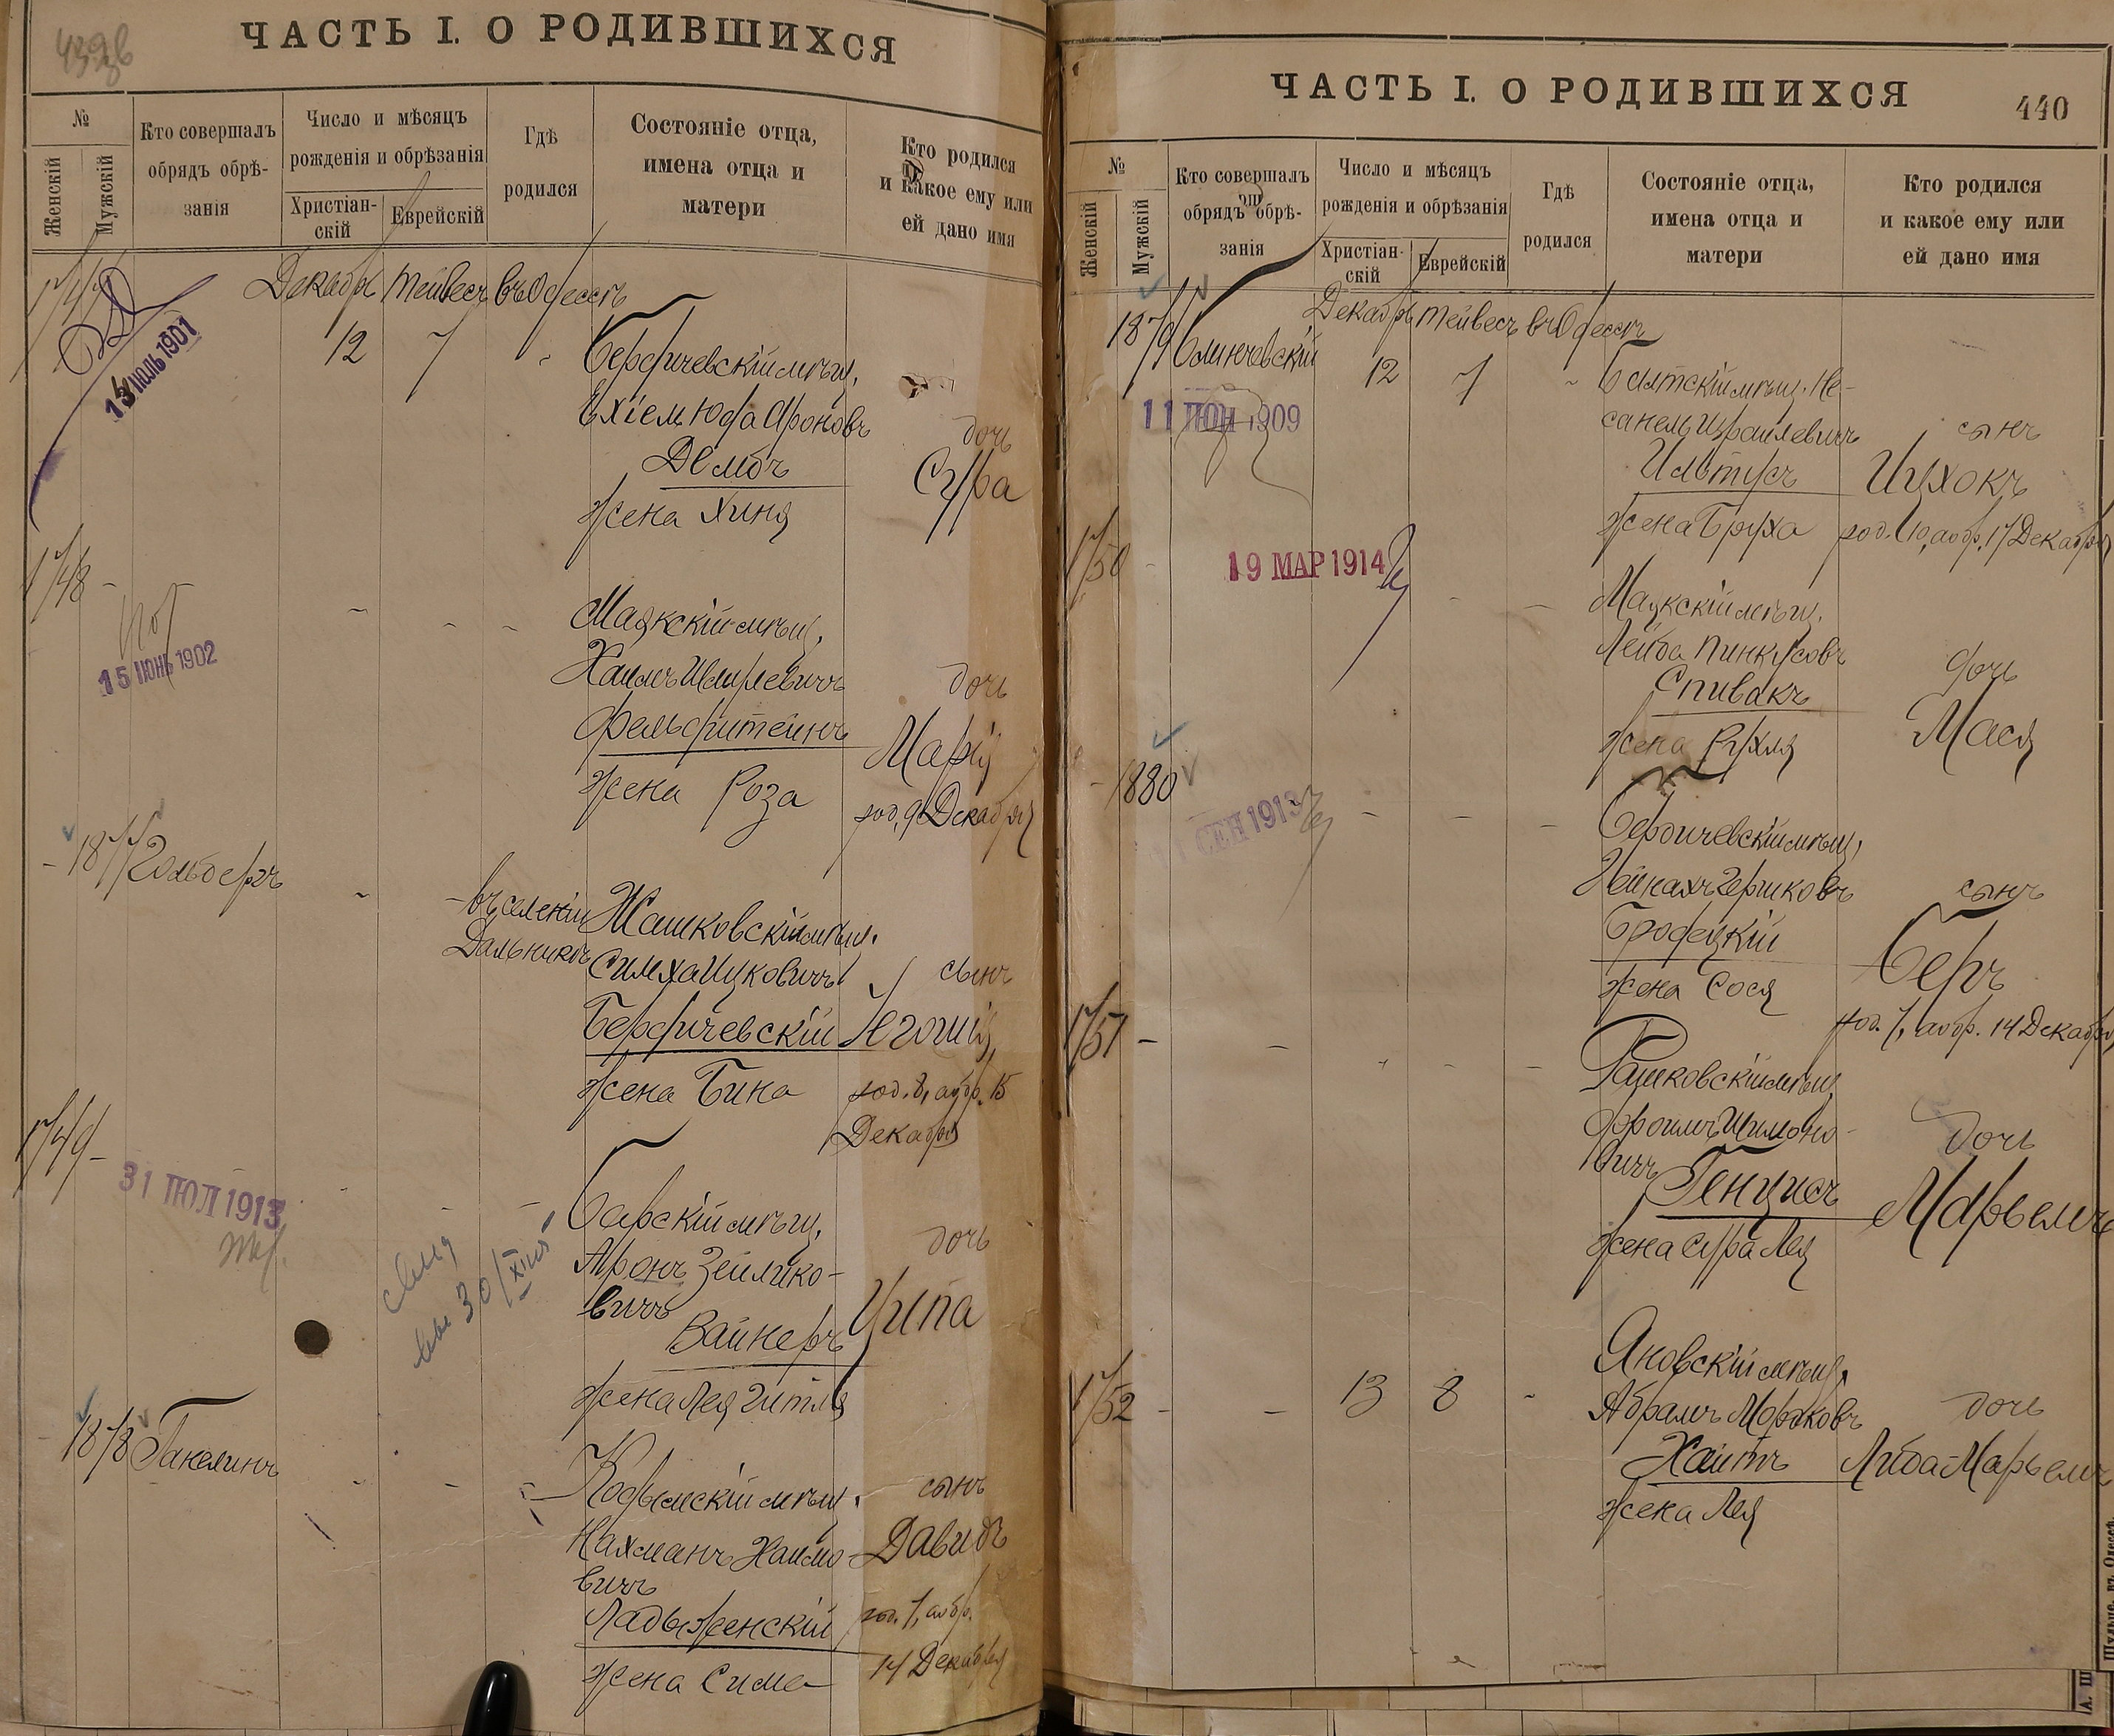 ЧАСТЬ I. О РОДИВШИХСЯ
№
Женскій
Мужскій
Кто совершалъ
обрядъ обрѣ-
занія
Число и мѣсяцъ
рожденія и обрѣзанія
Христіан-
скій
Еврейскій
Гдѣ
родился
Состояніе отца,
имена отца и
матери
Кто родился
и какое ему или
ей дано имя
1747
Декабр Тейвесъ въ Одессѣ
13 ІЮЛЬ 1901
12 7
Бердичевскій мѣщ.
Ехіел Юда Ароновъ
Дембъ
жена Хиня
дочь
Сура
1748 -
15 ІЮНЬ 1902
Маякскій мѣщ.
Хаимъ Шмулевичъ
Фельдштейнъ
жена Роза
дочь
Марія
род. 9 Декабря
- 1877 Гольдбергъ
въ селеніи
Дальникъ
Жашковскій мѣщ.
Симха Ицковичъ
Бердичевскій
жена Бина
сынъ
Іегошія
род. 8, обр. 15
Декабря
1749 -
31 ІЮЛ 1913
Барскій мѣщ.
Аронъ Зейлико-
вичъ
Вайнеръ
жена Лея Гитля
дочь
Ципа
1878 Ганелинъ
Кодымскій мѣщ.
Нахманъ Хаимо-
вичъ
Ладыженскій
жена Сима
сынъ
Давидъ
род. 7, обр.
14 Декабря
ЧАСТЬ I. О РОДИВШИХСЯ
440
№
Женскій
Мужскій
Кто совершалъ
обрядъ обрѣ-
занія
Число и мѣсяцъ
рожденія и обрѣзанія
Христіан-
скій
Еврейскій
Гдѣ
родился
Состояніе отца,
имена отца и
матери
Кто родился
и какое ему или
ей дано имя
Декабръ Тейвесъ въ Одессѣ
1879 Блинчевскій
12 7
11 ІЮН 1909
Балтскій мѣщ. Не-
санель Израилевичъ
Ильтусъ
жена Бруха
сынъ
Ицхокъ
род. 10, обр. 17 Декабря
1750 -
19 МАР 1914
Маякскій мѣщ.
Лейба Пинкусовъ
Спивакъ
жена Рухля
дочь
Мася
- 1880
СЕН 1913
Бердичевскій мѣщ.
Иойнахъ Гершковъ
Бродецкій
жена Сося
сынъ
Беръ
род. 7, обр. 14 Декабря
1751 -
Рашковскій мѣщ.
Фроимъ Шимоно-
вичъ
Генцисъ
жена Сура Лея
дочь
Марьемъ
1752 -
13 8
Яновскій мѣщ.
АбрамъМорзковъ
Хаитъ
жена Лея
дочь
Либа-Марьемъ